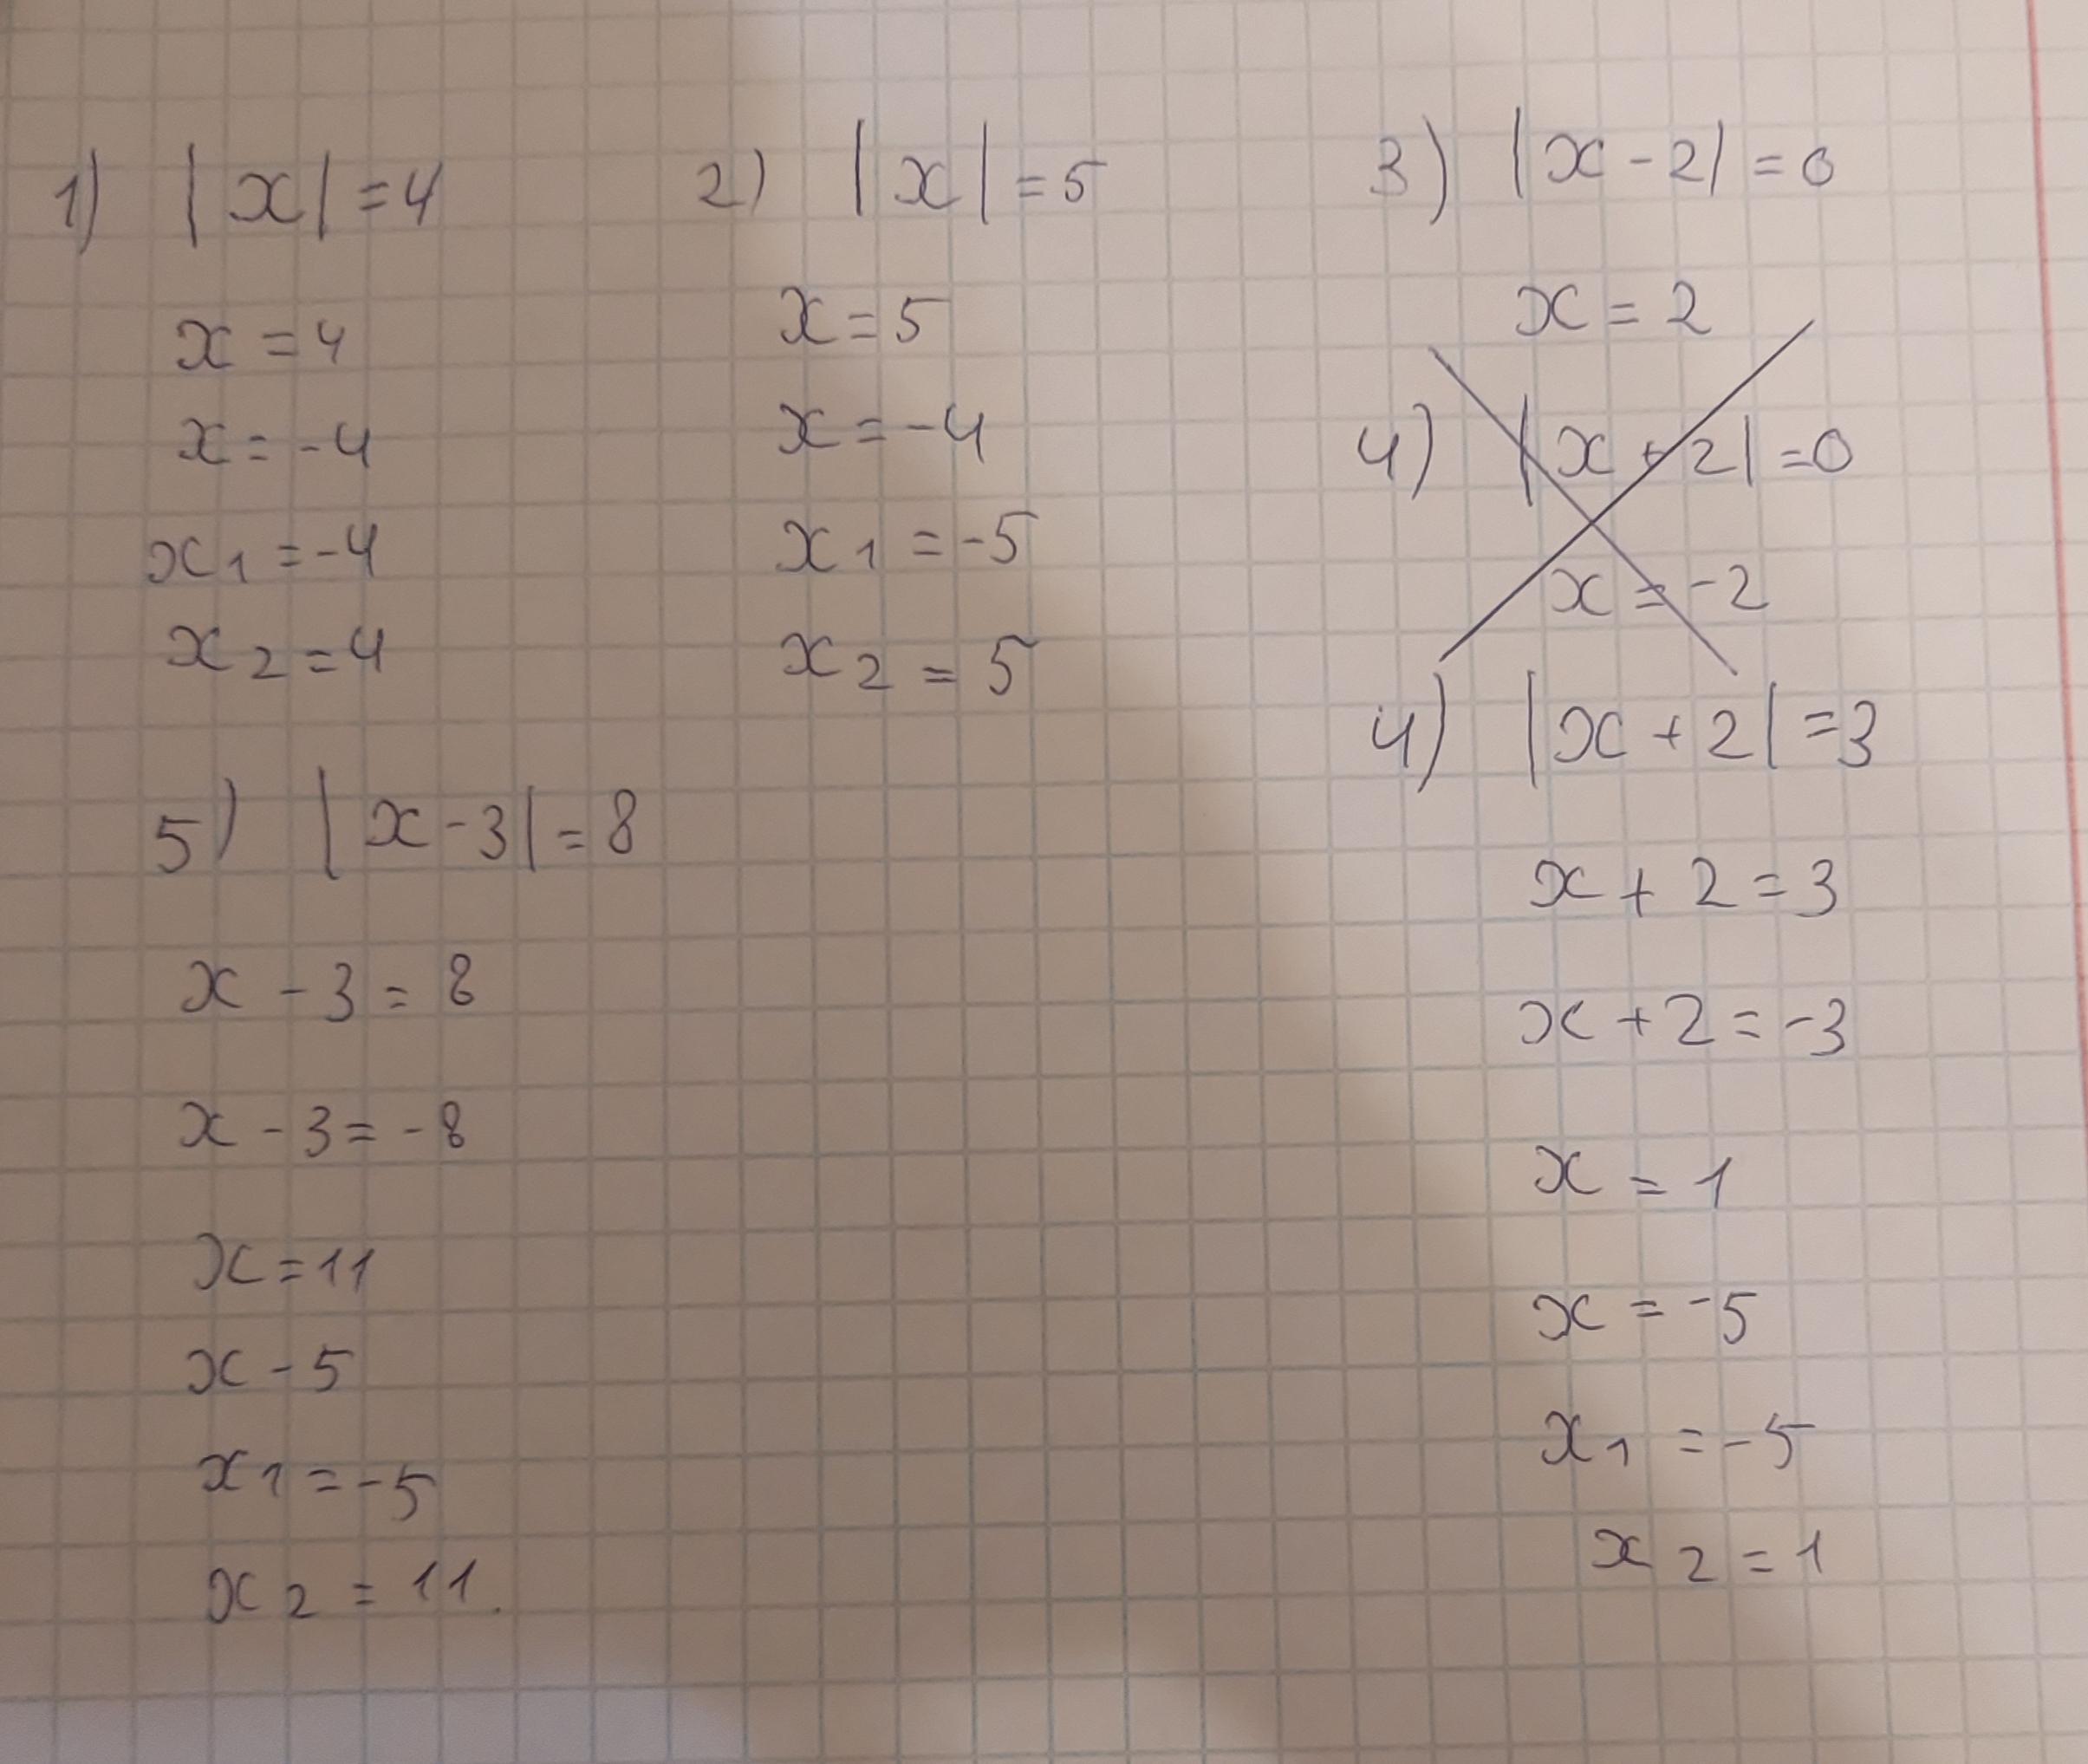 1) |x|=4
x=4
x=-4
x1=-4
x2=4
2) |x|=5
x=5
x=-4
x1=-5
x2=5
3) |x-2|=0
x=2
4) |x+2|=0
x=-2
4) |x+2|=3
x+2=3
x+2=-3
x=1
x=-5
x1=-5
x2=1
5) |x-3|=8
x-3=8
x-3=-8
x=11
x-5
x1=-5
x2=11.